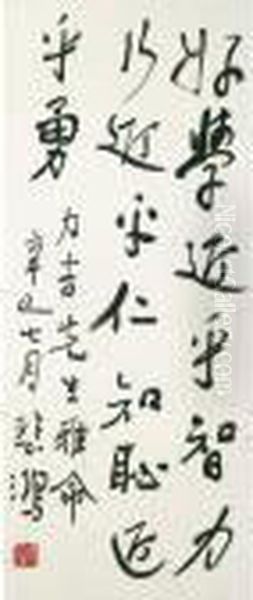 好學近乎智力
行近乎仁知恥近
乎勇
力吉先生雅命
辛巳七月悲鴻